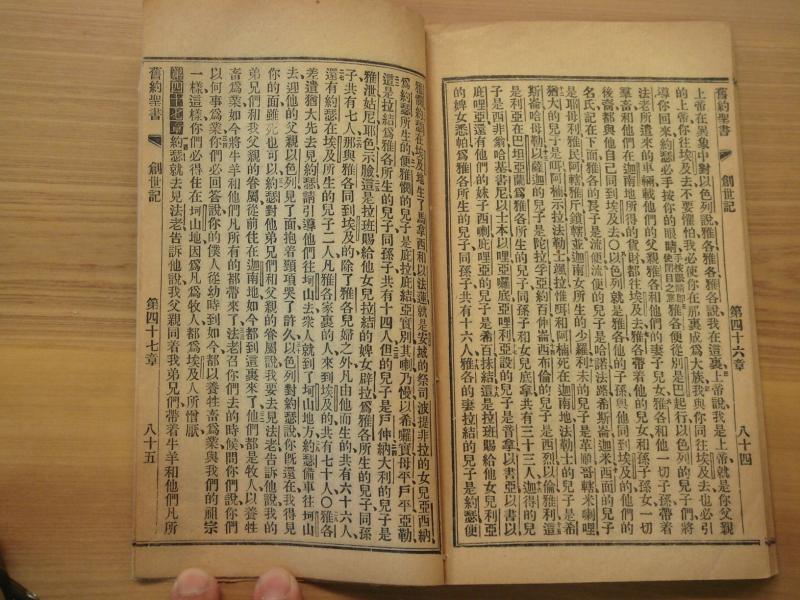 舊約聖書 創世記 第四十六章 八十四
上帝在異象中對以色列說、雅各雅各、雅各說、我在這裏、上帝說、我是上帝、就是你父親
的上帝、你往埃及去不要懼怕、我必使你在那裏成爲大族、我與你同往埃及去、也必引
導你回來、約瑟必手按你的眼睛、雅各便從別是巴起行、以色列的兒子們、將
法老所遣來的車輛、載他們的父親雅各、和他們的妻子兒女、雅各和他一切子孫、帶着
羣畜、和他們在迦南地所得的貨財、都往埃及去、雅各帶着他的兒女、和孫子孫女、一切
後裔、都與他自己同到埃及去、○以色列就是雅各、他的子孫、與他同到埃及的、他們的
名氏記在下面、雅各的長子是流便、流便的兒子是哈諾法路希斯崙迦米、西面的兒子
是耶母利雅民阿轄雅斤鎖轄、並迦南女所生的少羅、利未的兒子是革順哥轄米喇哩、
猶大的兒子是珥阿楠示拉法勒士颯拉、惟珥和阿楠死在迦南地、法勒士的兒子是希
斯崙哈母勒、以薩迦的兒子是陀拉孚亞約百伸崙、西布倫的兒子是西烈以倫雅利、這
是利亞在巴坦亞蘭爲雅各所生的兒子、同孫子和女兒底拿、共有三十三人、迦得的兒
子是西非翁哈基書尼以士本以哩亞囉底亞哩利、亞設的兒子是音拿以書亞以書以
庇哩亞、還有他們的妹子西喇、庇哩亞的兒子是希百抹結、這是拉班賜給他女兒利亞
的婢女悉帕爲雅各所生的兒子、同孫子共有十六人、雅各的妻拉結的兒子是約瑟便
雅憫、約瑟在埃及地生了馬拿西和以法蓮、就是安城的祭司波提非拉的女兒亞西納
爲約瑟所生的、便雅憫的兒子是庇拉庇結亞實別其喇乃慢以希囉實母平戶平亞勒、
這是拉結爲雅各所生的兒子、同孫子共有十四人、但的兒子是戶伸、納大利的兒子是
雅泄姑尼耶色示臉、這是拉班賜給他女兒拉結的婢女辟拉爲雅各所生的兒子、同孫
子共有七人、那與雅各同到埃及的、除了雅各兒婦之外、凡由他而生的、共有六十六人、
還有約瑟在埃及所生的兒子二人、凡雅各家裏的人來到埃及的、共有七十人、○雅各
差遣猶大先去見約瑟、請引導他們往坷山去、衆人就到了坷山地方、約瑟備車往坷山
去迎他的父親以色列、見了面抱着頸項哭了許久、以色列對約瑟說、你旣還在、我得見
你的面、雖死也可以、約瑟對他弟兄們和父親的眷屬說、我要去見法老、告訴他說、我的
弟兄們和我父親的眷屬、從前住在迦南地、如今都到這裏來了、他們都是牧人、以養牲
畜爲業、如今將牛羊和他們凡所有的都帶來了、法老召你們去的時候、問你們說、你們
以何事爲業、你們必回答說、你的僕人從幼時到如今、都以養牲畜爲業、與我們的祖宗
一樣、這樣你們必得住在坷山地、因爲凡爲牧人、都爲埃及人所憎厭、
第四十七章 約瑟就去見法老、告訴他說、我父親同着我弟兄們、帶着牛羊和他們凡所
舊約聖書 創世記 第四十七章 八十五